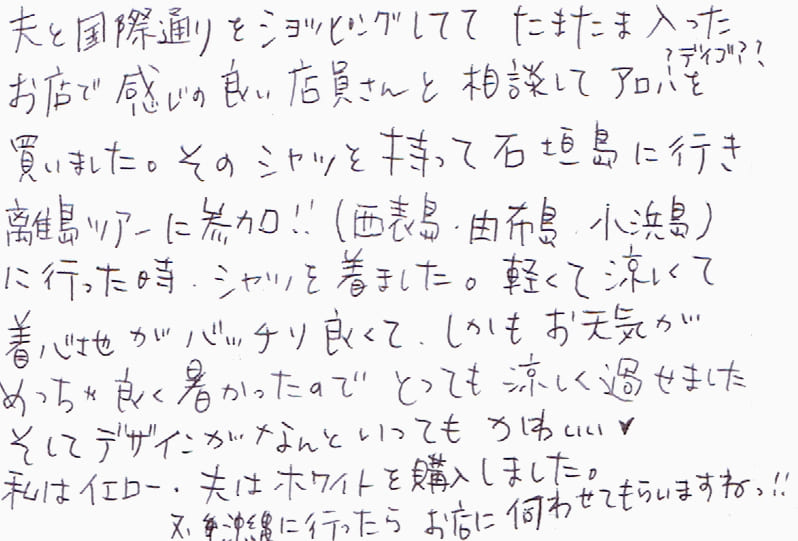 夫と国際通りをショッピングしてて たまたま入った
お店で感じの良い店員さんと相談してアロハを
?デイゴ??
買いました。そのシャツを持って石垣島に行き
離島ツアーに参加!!(西表島・由布島・小浜島)
に行った時、シャツを着ました。軽くて涼しくて
着心地がバッチリ良くて、しかもお天気が
めっちゃ良く暑かったのでとっても涼しく過せました
そしてデザインがなんといってもかわいい♥
私はイエロー、夫はホワイトを購入しました。
又 沖縄に行ったらお店に伺わせてもらいますねっ!!